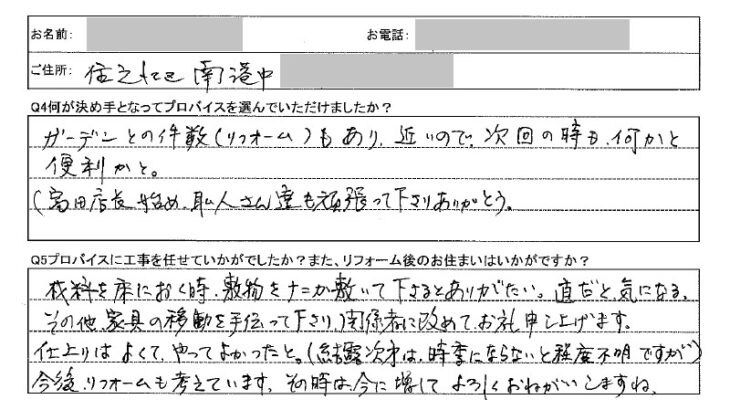 お名前: お電話:
ご住所: 住之江区 南港中
Q4何が決め手となってプロバイスを選んでいただけましたか?
ガーデンとの件数(リフォーム)もあり、近いので、次回の時も、何かと
便利かと。
(富田店長始め、職人さん達も頑張って下さりありがとう。
Q5プロバイスに工事を任せていかがでしたか?また、リフォーム後のお住まいはいかがですか?
材料を床におく時、敷物をナニか敷いて下さるとありがたい。直だと、気になる。
その他、家具の移動を手伝って下さり、関係者に改めてお礼申し上げます。
仕上りはよくて、やってよかったと。(結露次才は、時季にならないと程度不明ですが)
今後、リフォームも考えています。その時は今に増してよろしくおねがいしますね。